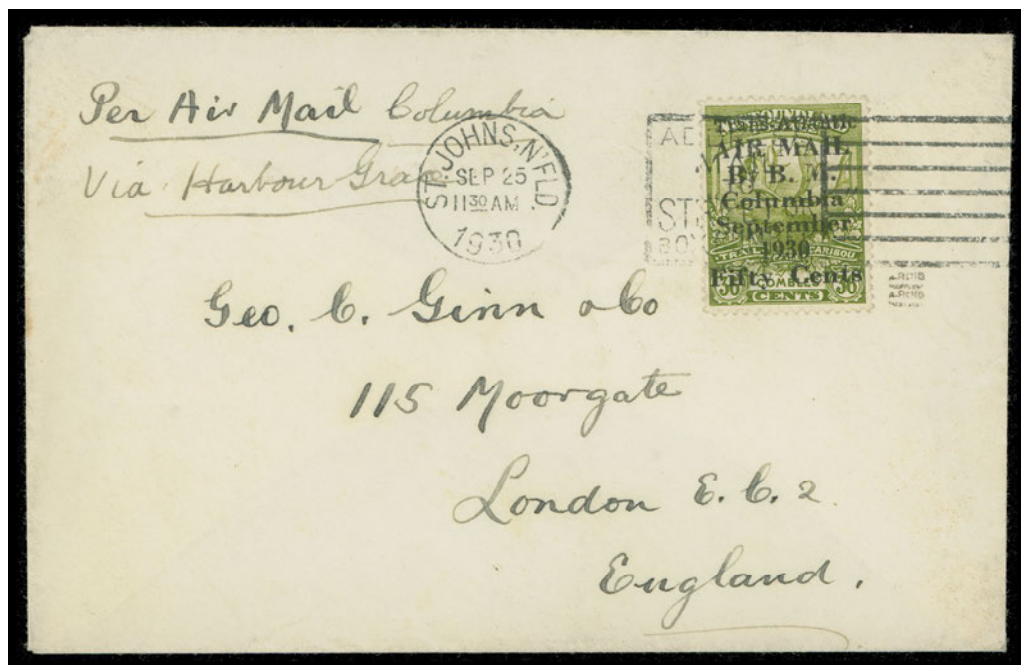 Per Air Mail Columbia
Via Harbour Grace
ST. JOHNS, N'FLD.
SEP 25
11 30 AM
1930
AIR MAIL
B. B. M.
Columbia
September
1930
Fifty Cents
TRAIL CARIBOU
COMBLES
36 CENTS 36
Geo. C. Ginn & Co
115 Moorgate
London E. C. 2
England.